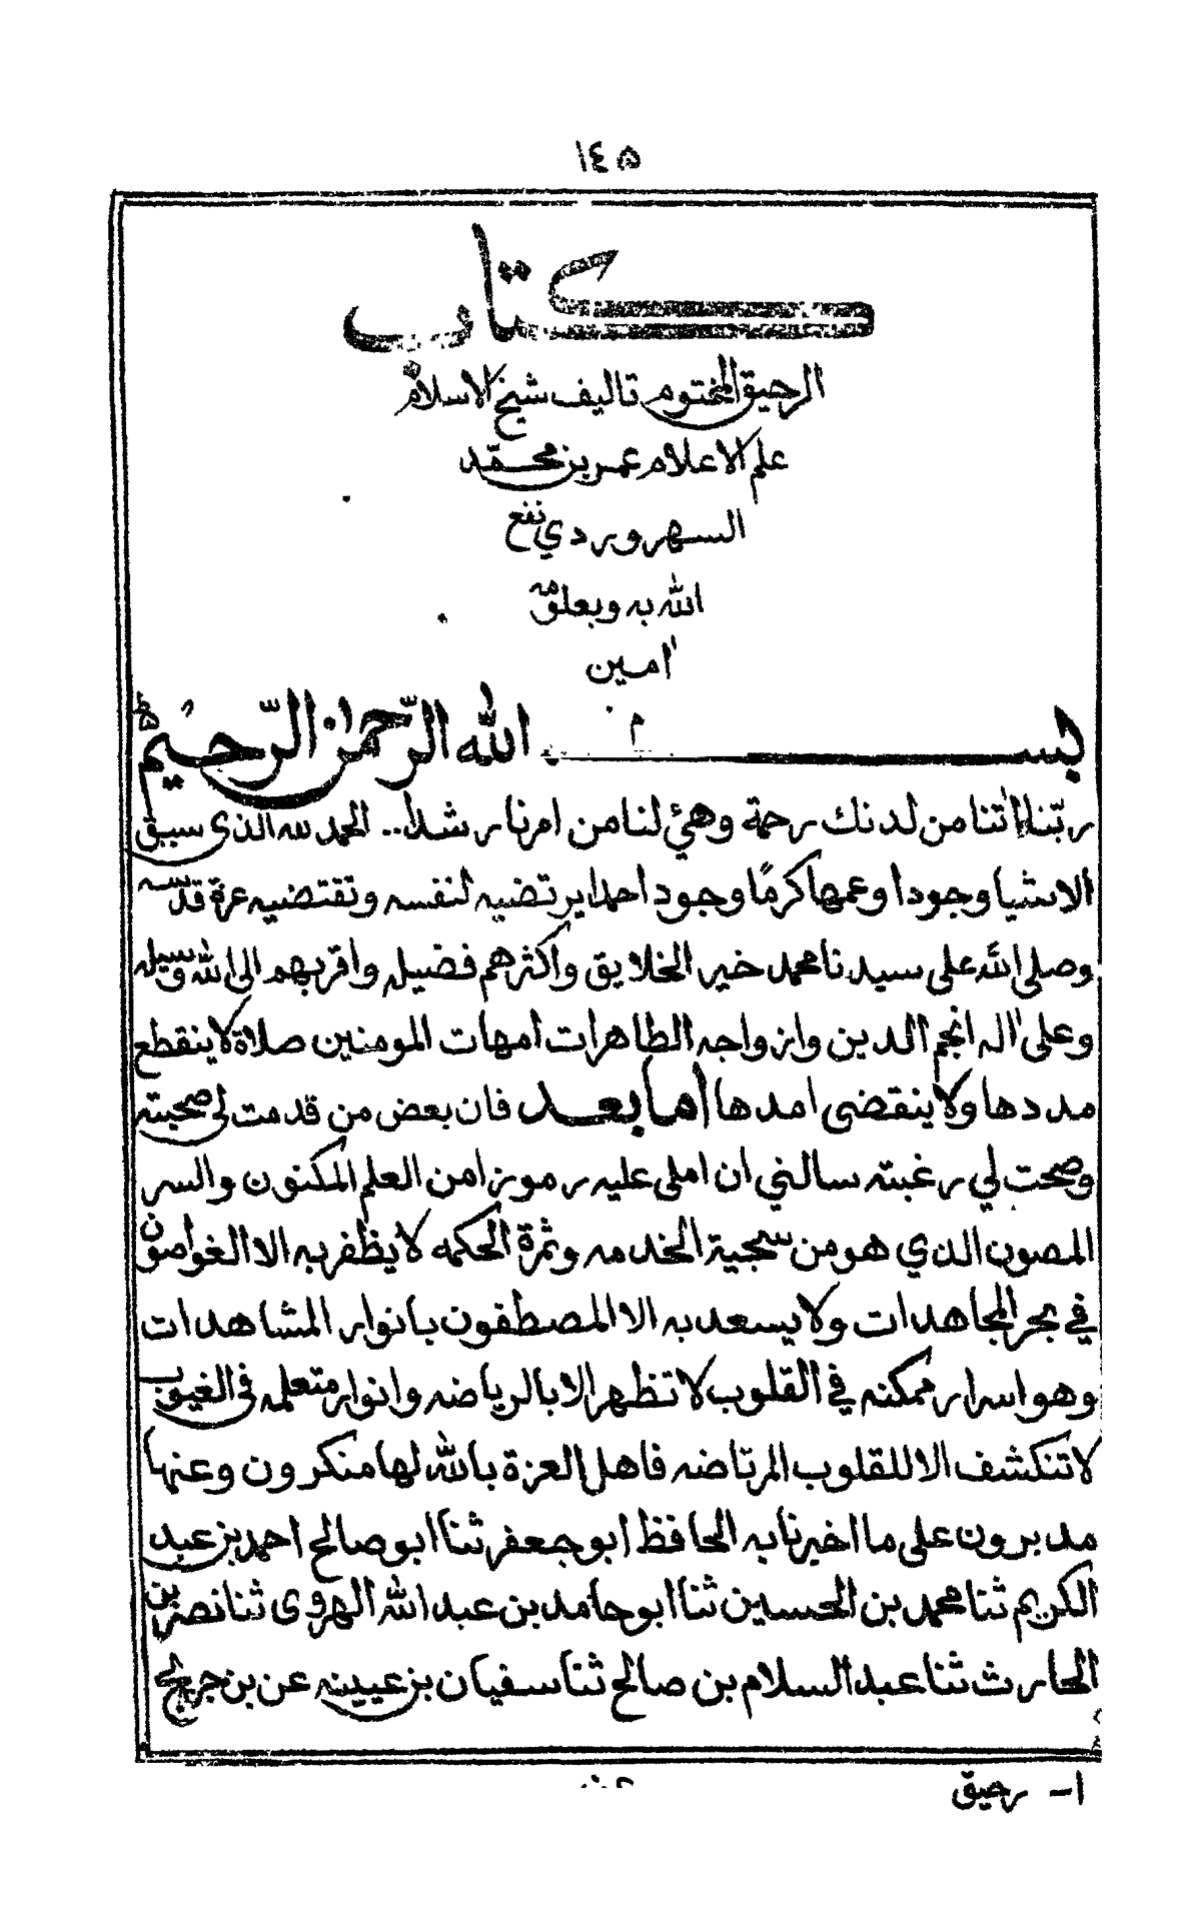 ١٤٥
كتاب
الرحيق المختوم تاليف شيخ الاسلام
علم الاعلام عمر بن محمد
السهروردي نفع
الله به وبعلومه
امين
م
بسم الله الرحمن الرحيم
ربنا اتنا من لدنك رحمة وهيئ لنا من امرنا رشدا.. الحمد لله الذي سبق
الاشيا وجودا وعمها كرمًا وجود احمدا يرتضيه لنفسه وتقتضيه عزة قدسه
وصلى الله على سيدنا محمد خير الخلايق واكثرهم فضيله واقربهم الى الله وسيله
وعلى اله انجم الدين وازواجه الطاهرات امهات المومنين صلاة لا ينقطع
مددها ولا ينقضى امدها اما بعد فان بعض من قدمت لي صحبته
وصحت لي رغبته سالني ان املى عليه رموزا من العلم المكنون والسر
المصون الذي هو من سجية الخدمه وثمرة الحكمه لا يظفر به الا الغواصون
في بحر المجاهدات ولا يسعد به الا المصطفون بانوار المشاهدات
وهو اسرار ممكنه في القلوب لا تظهر الا بالرياضه وانوار متعلمه فى الغيوب
لا تنكشف الا للقلوب المرتاضه فاهل العزة بالله لها منكرون وعنها
مدبرون على ما اخبرنا به الحافظ ابو جعفر ثنا ابو صالح احمد بن عبد
الكريم ثنا محمد بن الحسين ثنا ابو حامد بن عبد الله الهروى ثنا نصر بن
الحارث ثنا عبد السلام بن صالح ثنا سفيان بن عيينه عن بن جريج
١- رحيق